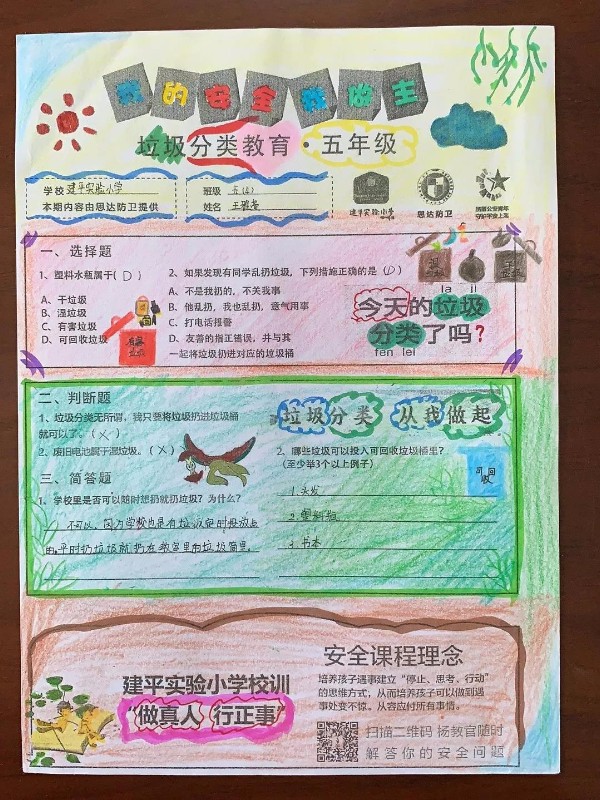 我的安全我做主
垃圾分类教育·五年级
学校 建平实验小学
本期内容由思达防卫提供
班级
姓名
建平实验小学
思达防卫
一、选择题
1、塑料水瓶属于( D )
A、干垃圾
B、湿垃圾
C、有害垃圾
D、可回收垃圾
2、如果发现有同学乱扔垃圾，下列措施正确的是( D )
A、不是我扔的，不关我事
B、他乱扔，我也乱扔，意气用事
C、打电话报警
D、友善的指正错误，并与其
一起将垃圾扔进对应的垃圾桶
la ji
今天的垃圾
分类了吗?
fen lei
二、判断题
1、垃圾分类无所谓，我只要将垃圾扔进垃圾桶
就可以了。( X )
2、废旧电池属于湿垃圾。( X )
垃圾分类 从我做起
2、哪些垃圾可以投入可回收垃圾桶里?
(至少举3个以上例子)
可回收
三、简答题
1、学校里是否可以随时想扔就扔垃圾？为什么？
不可以，因为学校也是有垃圾定时投放点
的，平时扔垃圾就扔在教室里的垃圾筒里。
2.塑料瓶
3.书本
建平实验小学校训
“做真人 行正事”
安全课程理念
培养孩子遇事建立“停止、思考、行动”
的思维方式，从而培养孩子可以做到遇
事处变不惊。从容应付所有事情。
扫描二维码 杨教官随时
解答你的安全问题